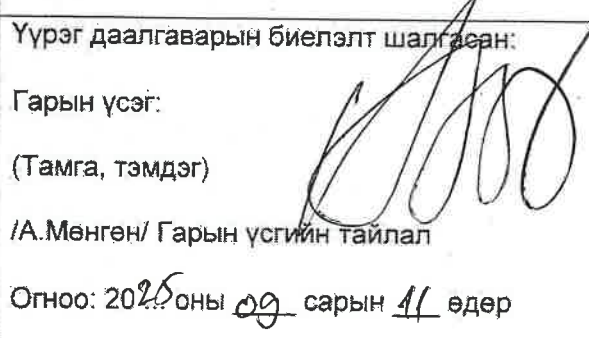 Үүрэг даалгаварын биелэлт шалгасан:
Гарын үсэг:
(Тамга, тэмдэг)
/А.Мөнгөн/ Гарын үсгийн тайлал
Огноо: 2025 оны 09 сарын 11 өдөр